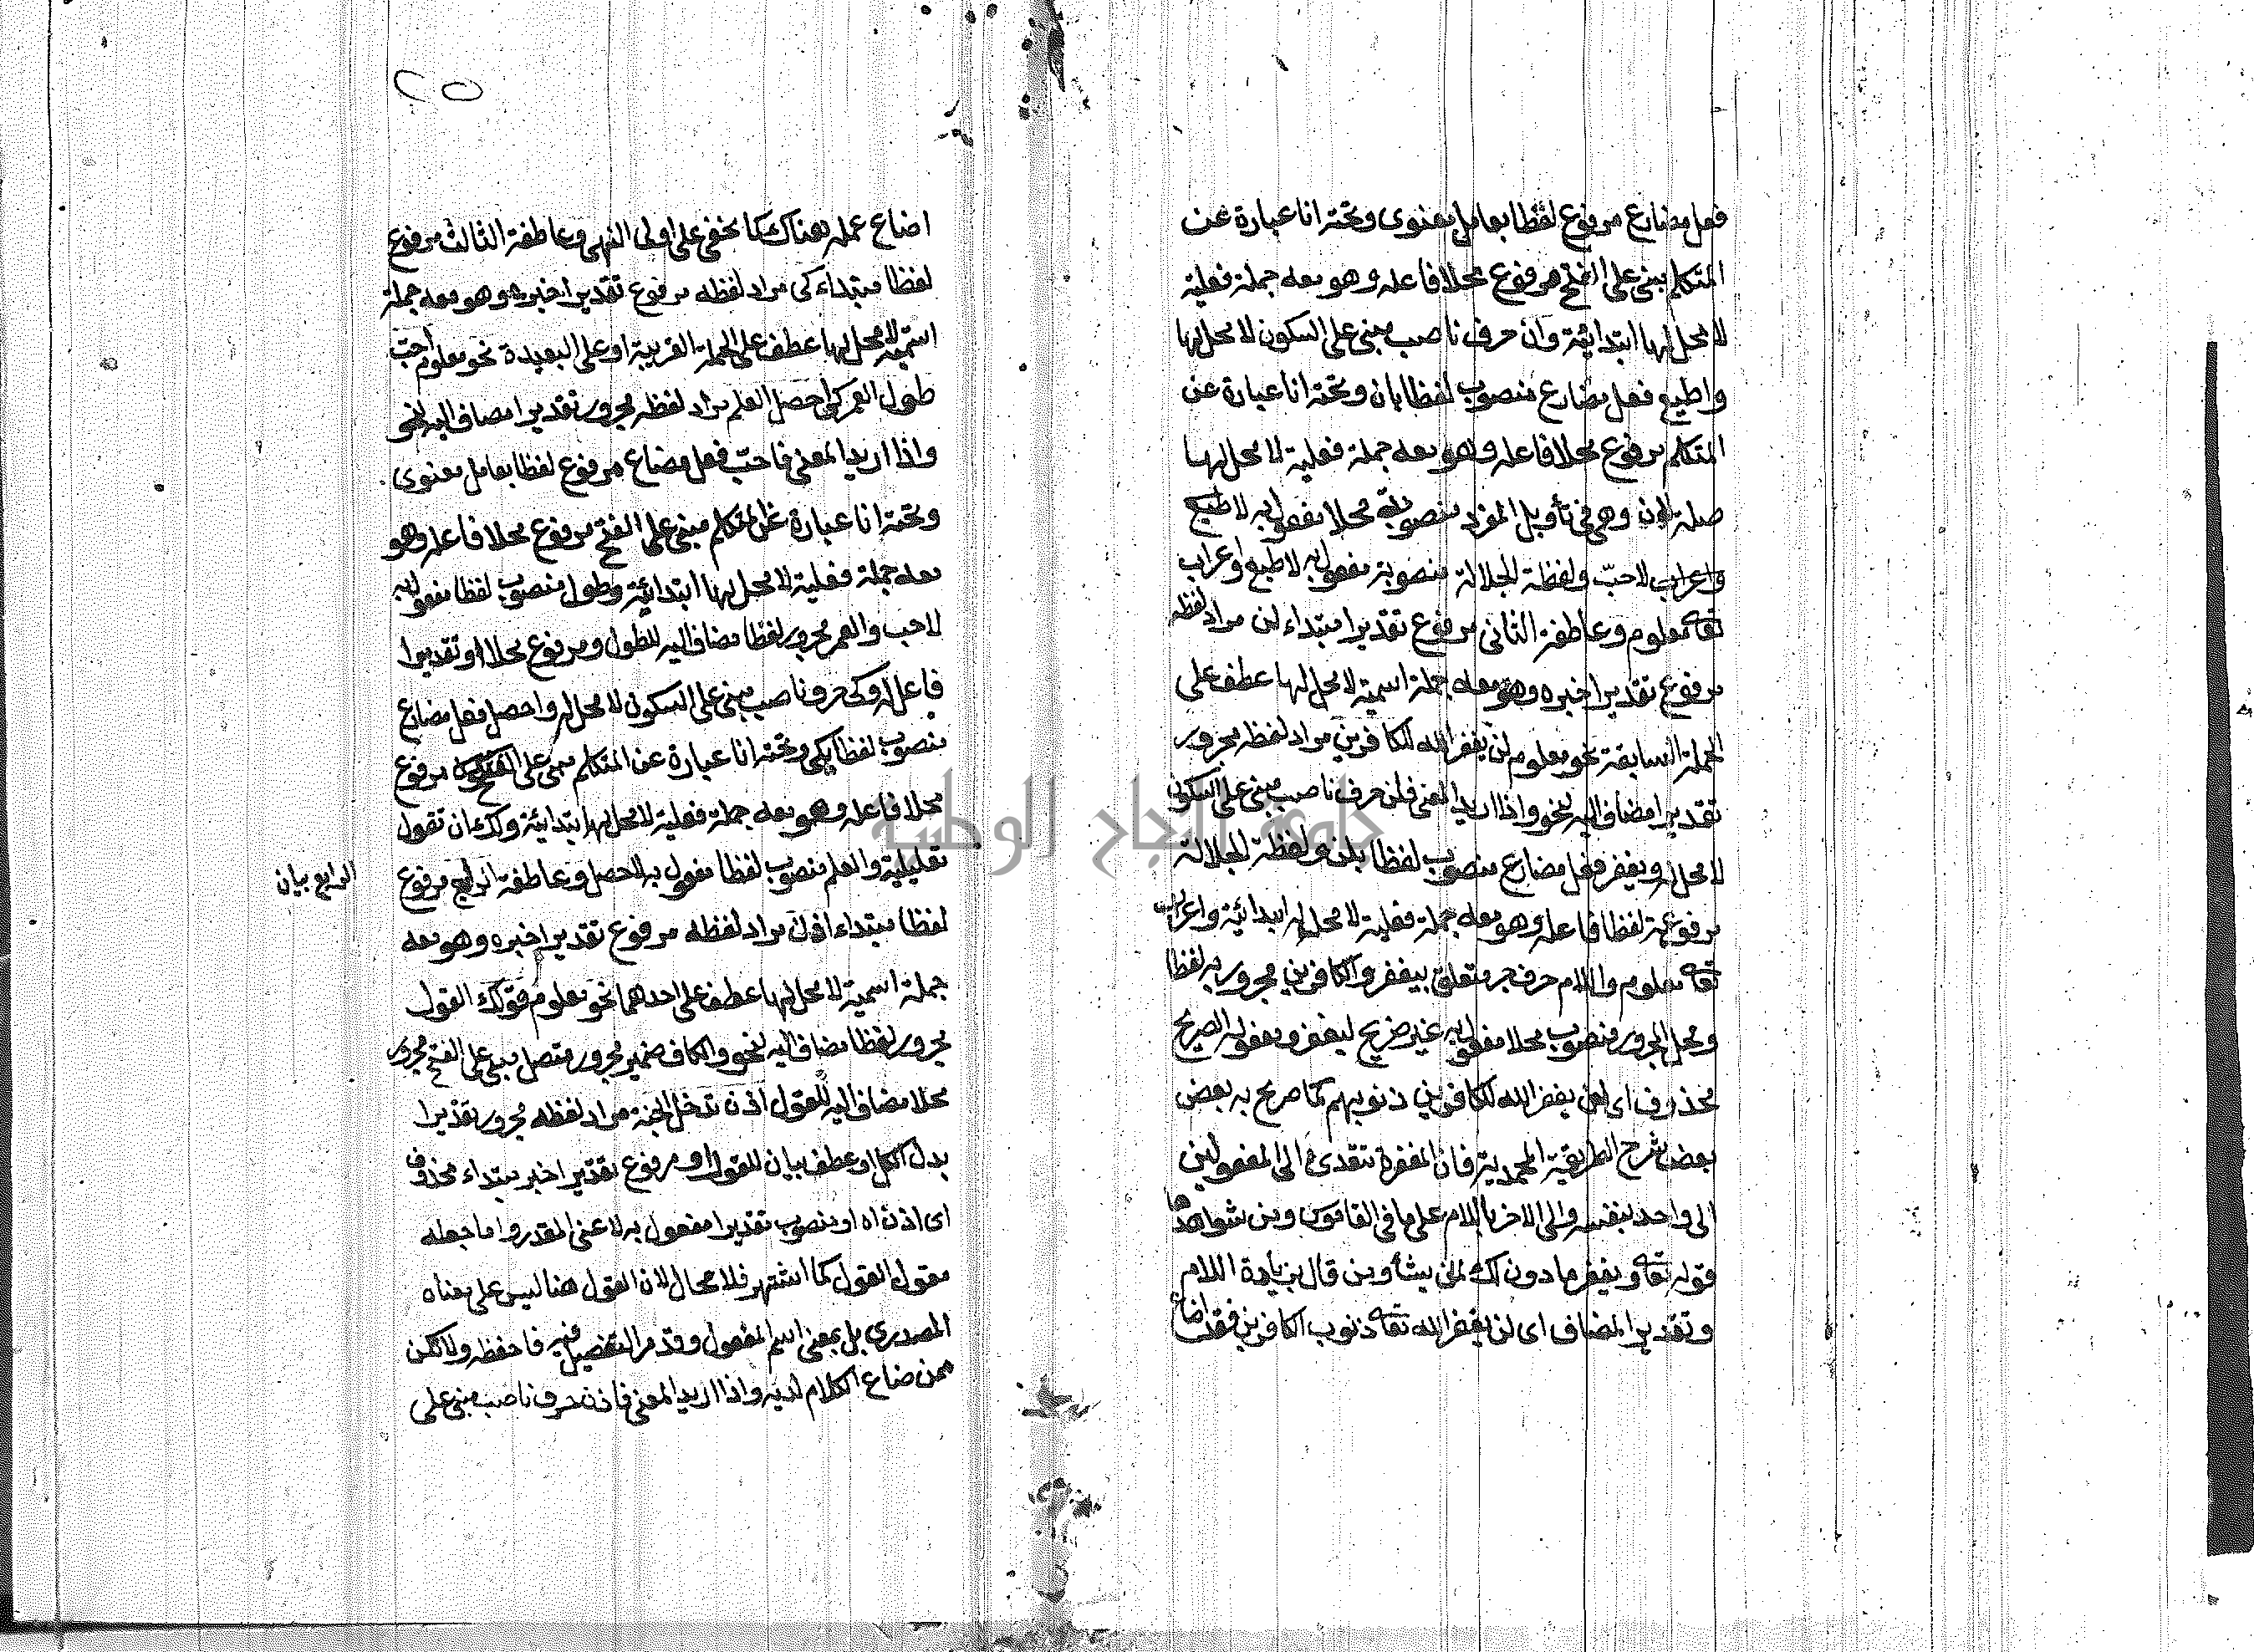 فعل مضارع مرفوع لفظا بعامل معنوى وتحته انا عبارة عن
المتكلم مبنى على الفتح مرفوع محلا فاعله وهو معه جملة فعلية
لا محل لها ابتدائية وان حرف ناصب مبنى على السكون لا محل لها
واطيع فعل مضارع منصوب لفظا بان وتحته انا عبارة عن
المتكلم مرفوع محلا فاعله وهو معه جملة فعلية لا محل لها
صلة لان وهى فى تأويل المفرد منصوبة محلا مفعول به لاطيع
واعراب لاحبّ ولفظة الجلالة منصوبة مفعول به لاطيع واعراب
تعالى معلوم وعاطفة الثانى مرفوع تقديرا مبتداء لن مراد لفظه
مرفوع تقديرا خبره وهو معه جملة اسمية لا محل لها عطف على
الجملة السابقة نحو معلوم لن يغفر الله للكافرين مراد لفظه مجرور
تقديرا مضاف اليه لنحو واذا اريد المعنى فلن حرف ناصب مبنى على السكون
لا محل له ويغفر فعل مضارع منصوب لفظا بلن ولفظة الجلالة
مرفوعة لفظا فاعله وهو معه جملة فعلية لا محل لها ابتدائية واعراب
تعالى معلوم واللام حرف جر متعلق بيغفر والكافرين مجرور به لفظا
ومحل المجرور منصوب محلا مفعول به غير صريح ليغفر ومفعوله الصريح
محذوف اى لن يغفر الله للكافرين ذنوبهم كما صرح به بعض
بعض شرح الطريقة المحمدية فان المغفرة تتعدى الى المفعولين
الى واحد بنفسه والى الاخر باللام على ما فى القاموس ومن شواهدها
قوله تعالى ويغفر ما دون ذلك لمن يشأ ومن قال بزيادة اللام
وتقدير المضاف اى لن يغفر الله تعالى ذنوب الكافرين فقد اضاع
٢٥
اضاع عمله هناك كما يخفى على اولى النهى وعاطفة الثالث مرفوع
لفظا مبتداء كى مراد لفظه مرفوع تقديرا خبره وهو معه جملة
اسمية لا محل لها عطف على الجملة القريبة او على البعيدة نحو معلوم احبّ
طول العمر كى احصل العلم مراد لفظه مجرور تقديرا مضاف اليه لنحو
واذا اريد المعنى فاحبّ فعل مضاع مرفوع لفظا بعامل معنوى
وتحته انا عبارة عن المتكلم مبنى على الفتح مرفوع محلا فاعله وهو
معه جملة فعلية لا محل لها ابتدائية وطول منصوب لفظا مفعول به
لاحب والعمر مجرور لفظا مضاف اليه للطول ومرفوع محلا او تقديرا
فاعل له وكى حرف ناصب مبنى على السكون لا محل له واحصل فعل مضارع
منصوب لفظا بكى وتحته انا عبارة عن المتكلم مبنى على الفتح مرفوع
محلا فاعله وهو معه جملة فعلية لا محل لها ابتدائية ولك ان تقول
تعليلية والعلم منصوب لفظا مفعول به لاحصل وعاطفة الرابع مرفوع
الرابع بيان
لفظا مبتداء اذن مراد لفظه مرفوع تقديرا خبره وهو معه
جملة اسمية لا محل لها عطف على احدهما نحو معلوم قولك القول
مجرور لفظا مضاف اليه لنحو والكاف ضمير مجرور متصل مبنى على الفتح مجرور
محلا مضاف اليه للقول اذن تدخل الجنة مراد لفظه مجرور تقديرا
بدل الكل او عطف بيان للقول او مرفوع تقديرا خبر مبتداء محذوف
اى اذن اه او منصوب تقديرا مفعول به لاعنى المقدر واما جعله
مقول القول كما اشتهر فلا مجال لان القول هنا ليس على معناه
المصدرى بل بمعنى اسم المفعول وقد مر التفصيل فيه فاحفظه ولا تكن
ممن ضاع الكلام لديه واذا اريد المعنى فاذن حرف ناصب مبنى على
جامعة النجاح الوطنية